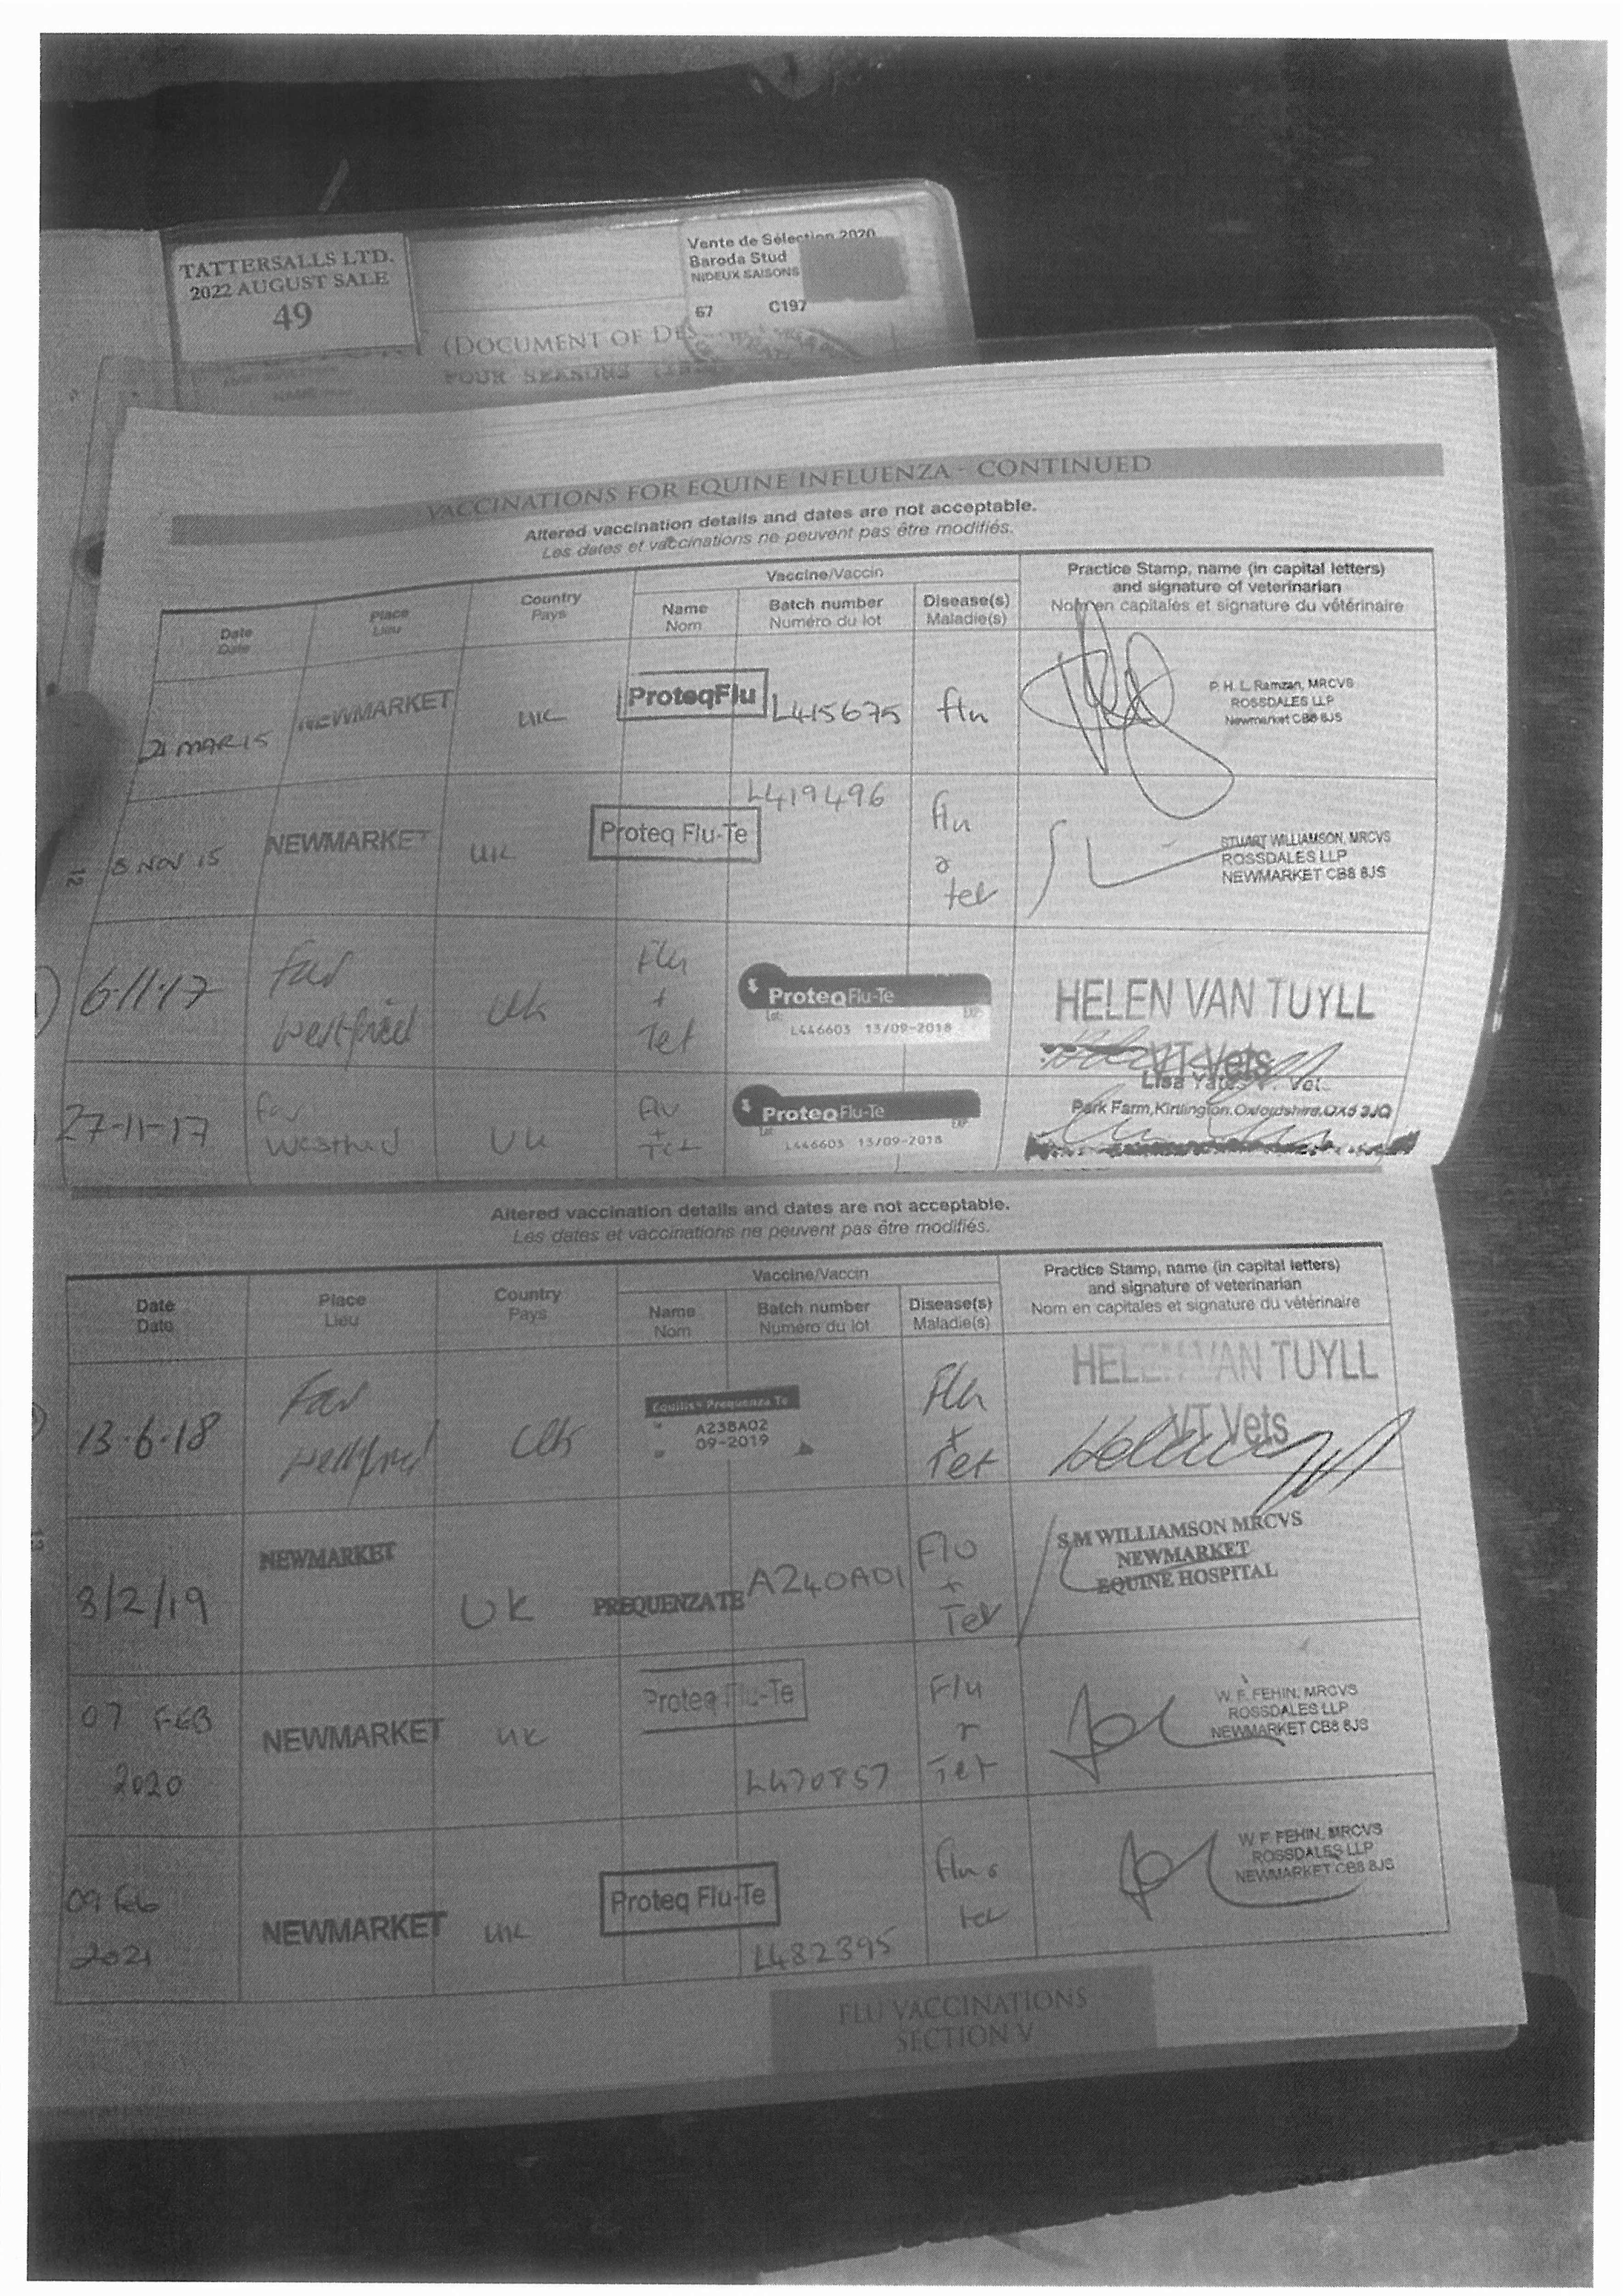 TATTERSALLS LTD.
2022 AUGUST SALE
49
Vente de Sélection 2020
Baroda Stud
NIDEUX SAISONS
67 C197
(DOCUMENT OF DES
FOUR SEASONS
VACCINATIONS FOR EQUINE INFLUENZA - CONTINUED
Altered vaccination details and dates are not acceptable.
Les dates et vaccinations ne peuvent pas être modifiés.
Date
Date
Place
Lieu
Country
Pays
Vaccine/Vaccin
Name
Nom
Batch number
Numéro du lot
Disease(s)
Maladie(s)
Practice Stamp, name (in capital letters)
and signature of veterinarian
Nom en capitales et signature du vétérinaire
21 MAR 15 NEWMARKET UK ProteqFlu L415675 flu
P. H. L. Ramzan, MRCVS
ROSSDALES LLP
Newmarket CB8 8JS
12
8 NOV 15 NEWMARKET UK Proteq Flu-Te L419496 flu
tet
STUART WILLIAMSON, MRCVS
ROSSDALES LLP
NEWMARKET CB8 8JS
6·11·17 Far
Westfield
UK Flu
+
Tet
ProteqFlu-Te
Lot: EXP
L446603 13/09-2018
HELEN VAN TUYLL
VT Vets
27-11-17 Far
UK Flu
+
Tet
ProteqFlu-Te
Lot: EXP
L446603 13/09-2018
Lisa
Park Farm, Kirtlington, Oxfordshire, OX5 3JQ
Altered vaccination details and dates are not acceptable.
Les dates et vaccinations ne peuvent pas être modifiés.
Date
Date
Place
Lieu
Country
Pays
Vaccine/Vaccin
Name
Nom
Batch number
Numéro du lot
Disease(s)
Maladie(s)
Practice Stamp, name (in capital letters)
and signature of veterinarian
Nom en capitales et signature du vétérinaire
13·6·18 Far
Westfield
UK Equilis Prequenza Te
A238A02
09-2019
Flu
+
Tet
HELEN VAN TUYLL
VT Vets
8/2/19 NEWMARKET UK PREQUENZA TE A240A01 Flu
+
Tet
S M WILLIAMSON MRCVS
NEWMARKET
EQUINE HOSPITAL
07 FEB
2020
NEWMARKET UK Proteq Flu-Te L470857 Flu
Tet
W. F. FEHIN, MRCVS
ROSSDALES LLP
NEWMARKET CB8 8JS
09 Feb
2021
NEWMARKET UK Proteq Flu-Te L482395 Flu
tet
W. F. FEHIN, MRCVS
ROSSDALES LLP
NEWMARKET CB8 8JS
FLU VACCINATIONS
SECTION V